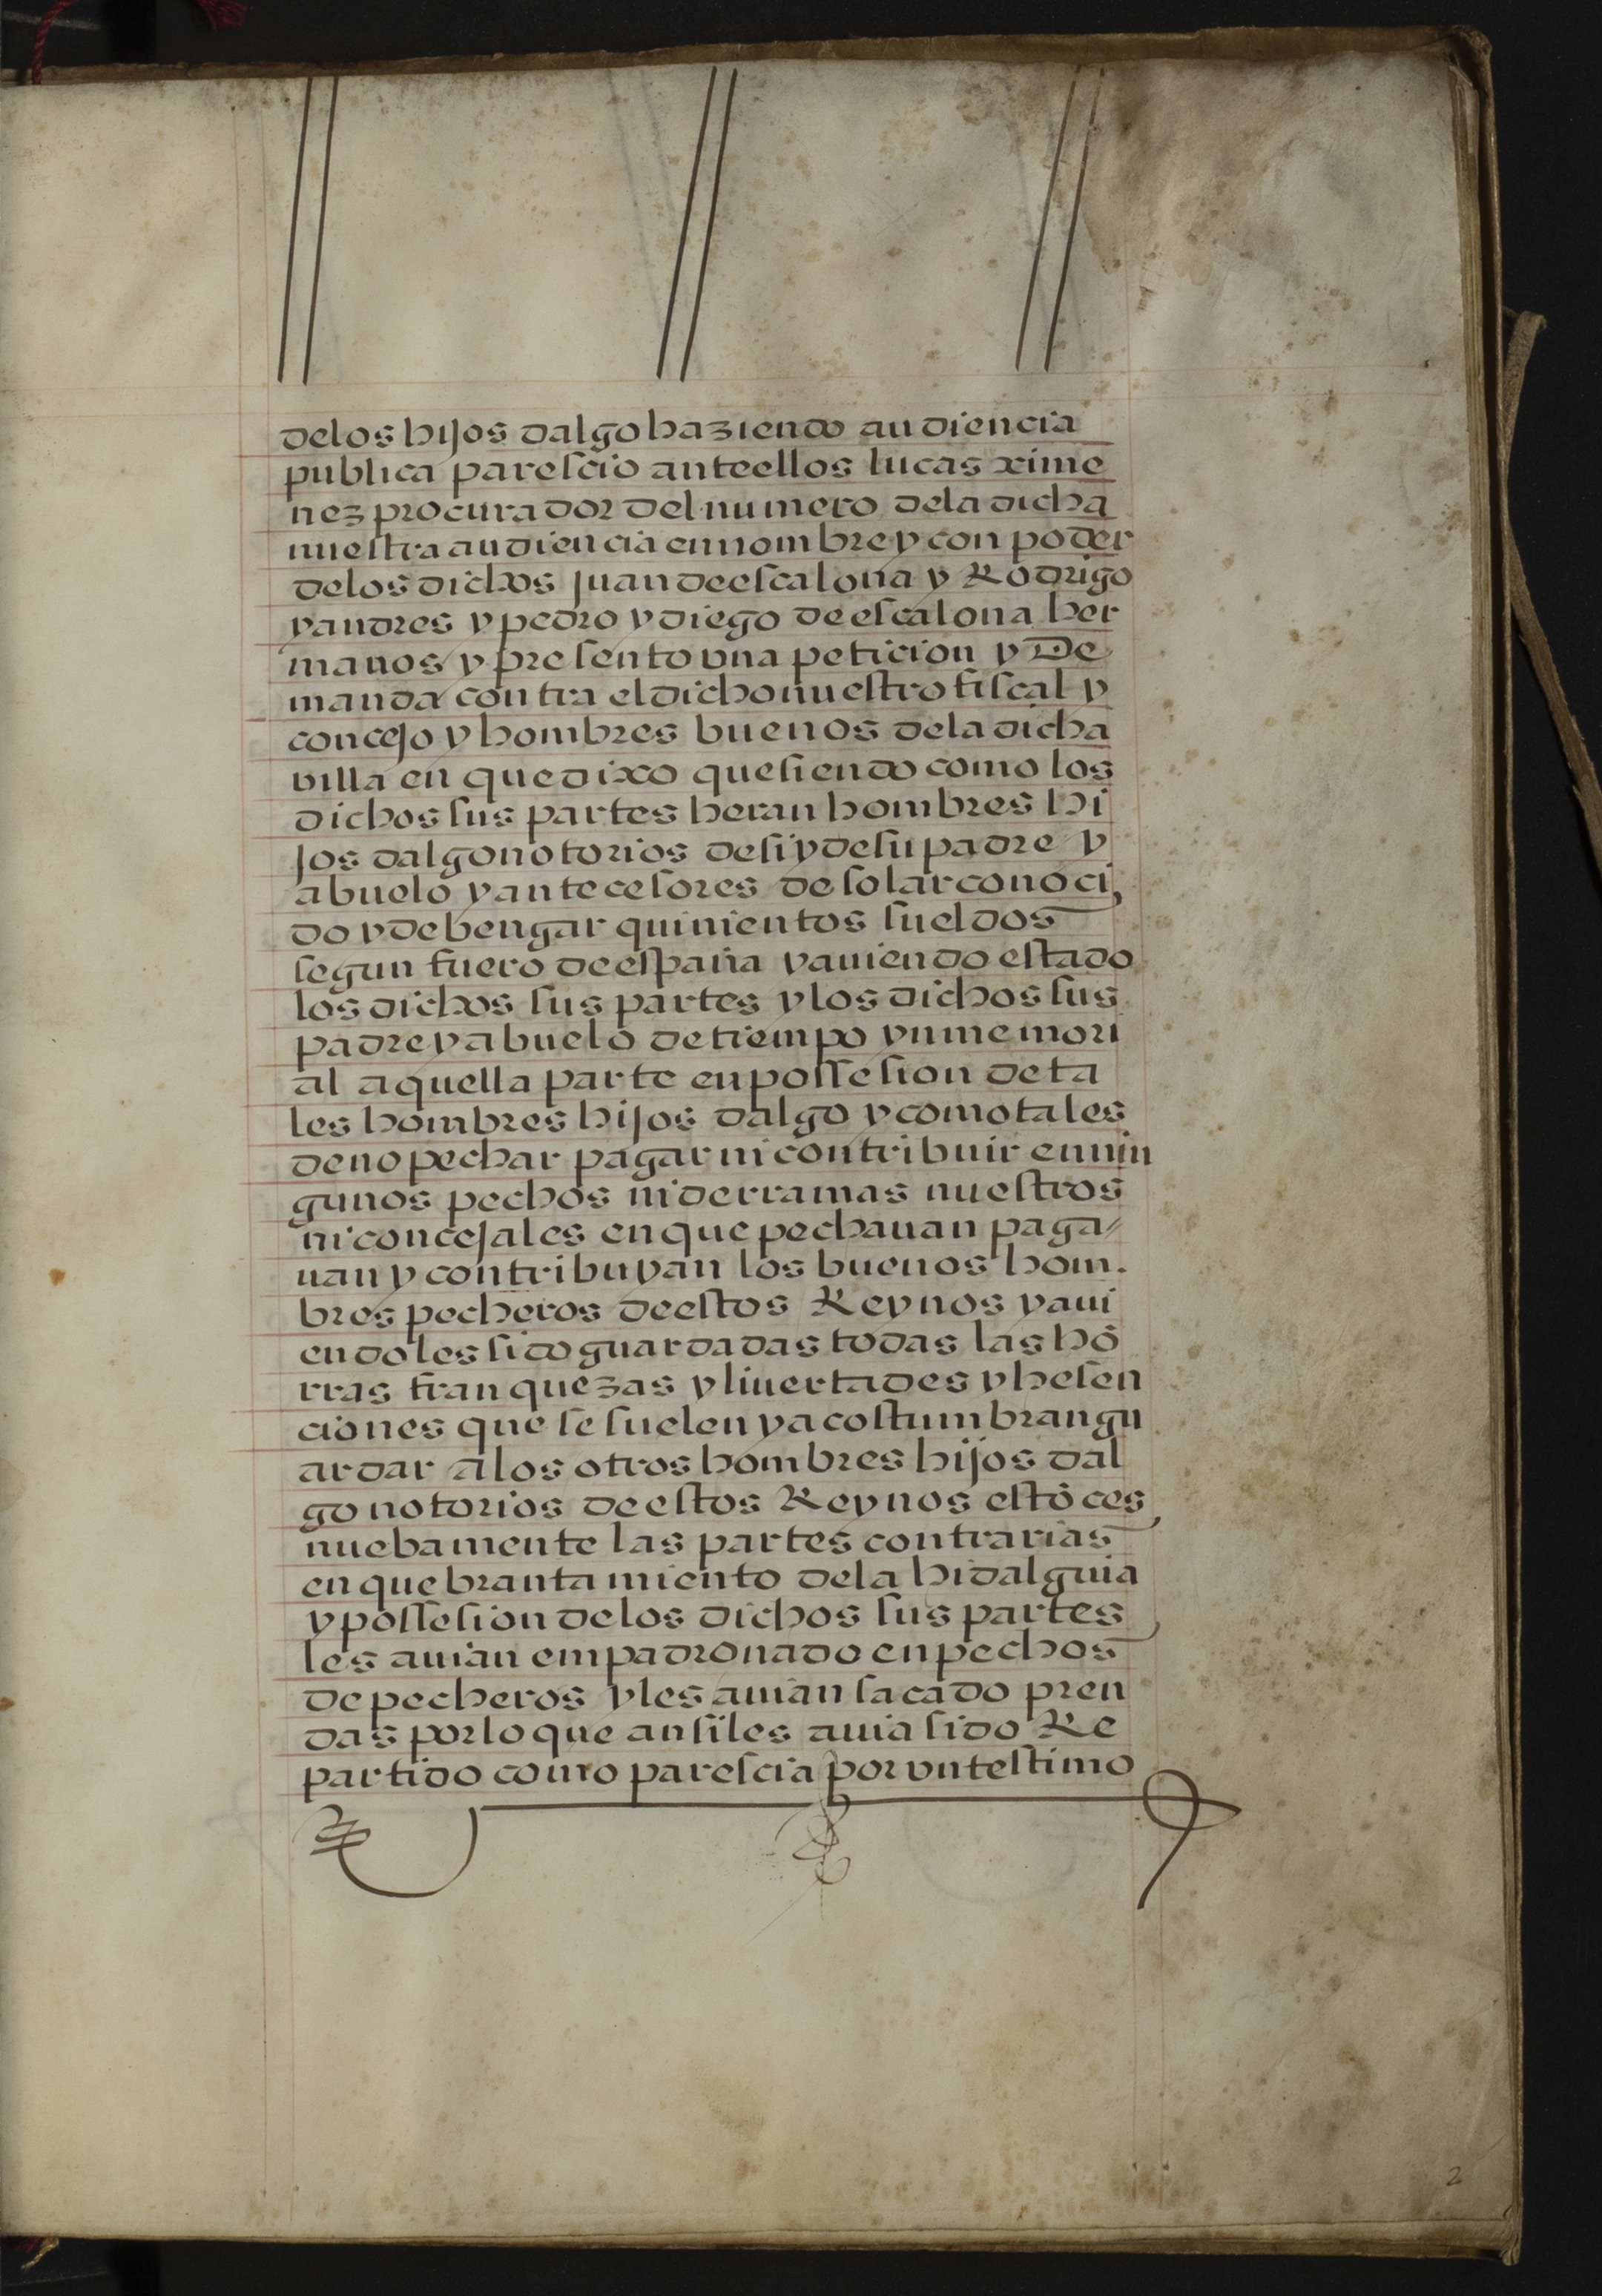 delos hijos dalgo haziendo audiencia
publica parescio anteellos lucas xime
nez procurador del numero dela dicha
nuestra audiencia en nombre y con poder
delos dichos juan deescalona y Rodrigo
y andres y pedro y diego de escalona her
manos y presento vna peticion y De
manda contra el dicho nuestro fiscal y
concejo y hombres buenos dela dicha
villa en que dixo que siendo como los
dichos sus partes heran hombres hi
jos dalgo notorios de si y de su padre y
abuelo y antecesores de solar conoci
do y de bengar quinientos sueldos
segun fuero de españa y auiendo estado
los dichos sus partes y los dichos sus
padre y abuelo de tiempo ynmemori
al aquella parte en possesion de ta
les hombres hijos dalgo y como tales
de no pechar pagar ni contribuir en nin
gunos pechos ni derramas nuestros
ni concejales en que pechauan paga
uan y contribuyan los buenos hom.
bres pecheros de estos Reynos y aui
endoles sido guardadas todas las hõ
rras franquezas y liuertades y hesen
ciones que se suelen y acostumbran gu
ardar a los otros hombres hijos dal
go notorios de estos Reynos estõces
nuebamente las partes contrarias
en quebrantamiento dela hidalguia
y possesion delos dichos sus partes
les auian empadronado en pechos
de pecheros y les auian sacado pren
das por lo que ansi les auia sido Re
partido como parescia por vn testimo
2